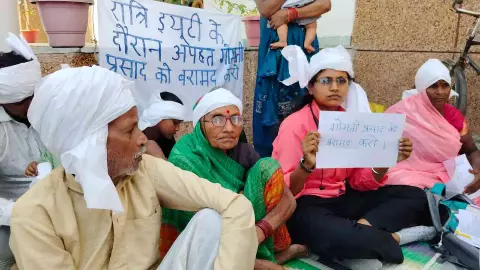 रात्रि ड्यूटी के
दौरान अपहृत गोमती
प्रसाद को बरामद करो
गोमती प्रसाद को
बरामद करो!